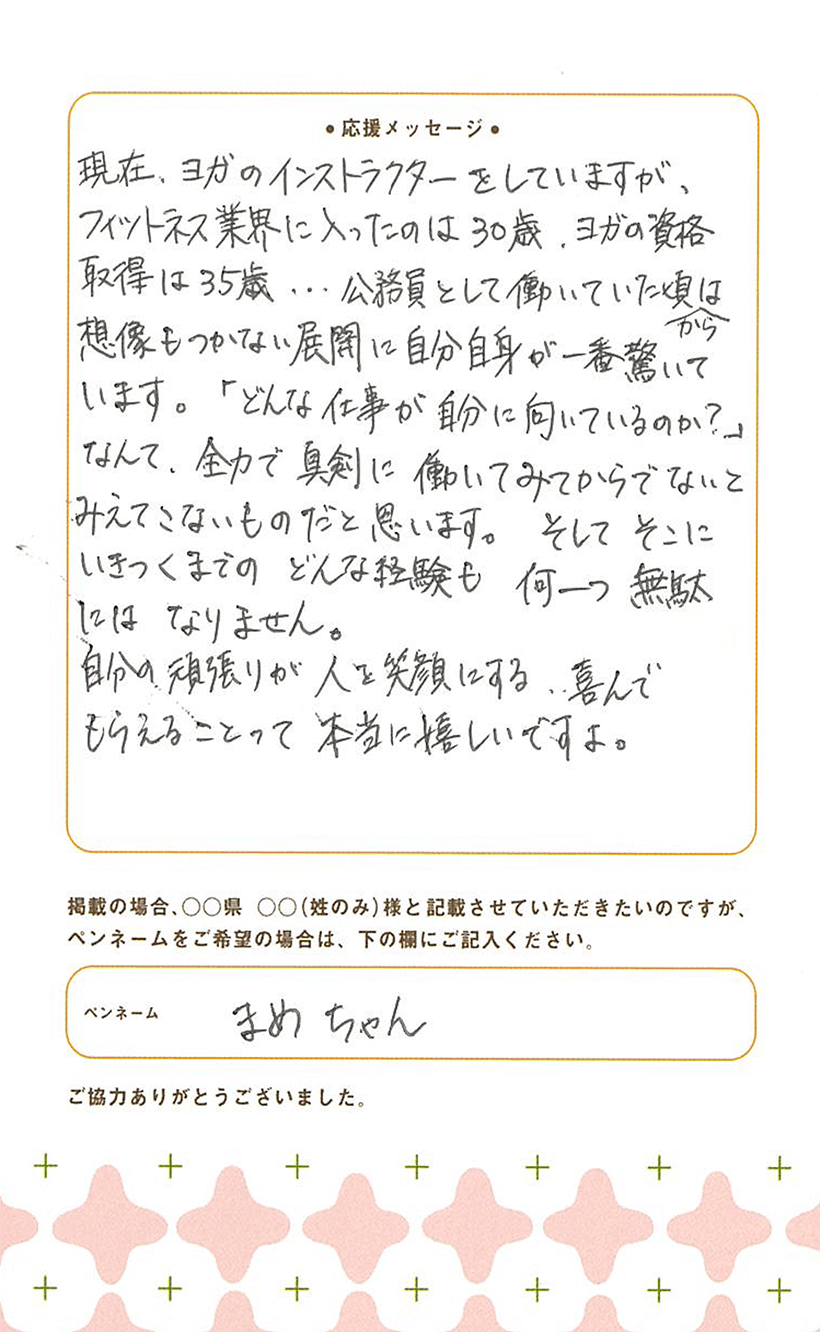 •応援メッセージ•
現在、ヨガのインストラクターをしていますが、
フィットネス業界に入ったのは30歳、ヨガの資格
取得は35歳…公務員として働いていた頃は
から
想像もつかない展開に自分自身が一番驚いて
います。「どんな仕事が自分に向いているのか?」
なんて、全力で真剣に働いてみてからでないと
みえてこないものだと思います。そしてそこに
いきつくまでのどんな経験も何一つ無駄
にはなりません。
自分の頑張りが人を笑顔にする、喜んで
もらえることって本当に嬉しいですよ。
掲載の場合、○○県 ○○(姓のみ)様と記載させていただきたいのですが、
ペンネームをご希望の場合は、下の欄にご記入ください。
ペンネーム まめちゃん
ご協力ありがとうございました。